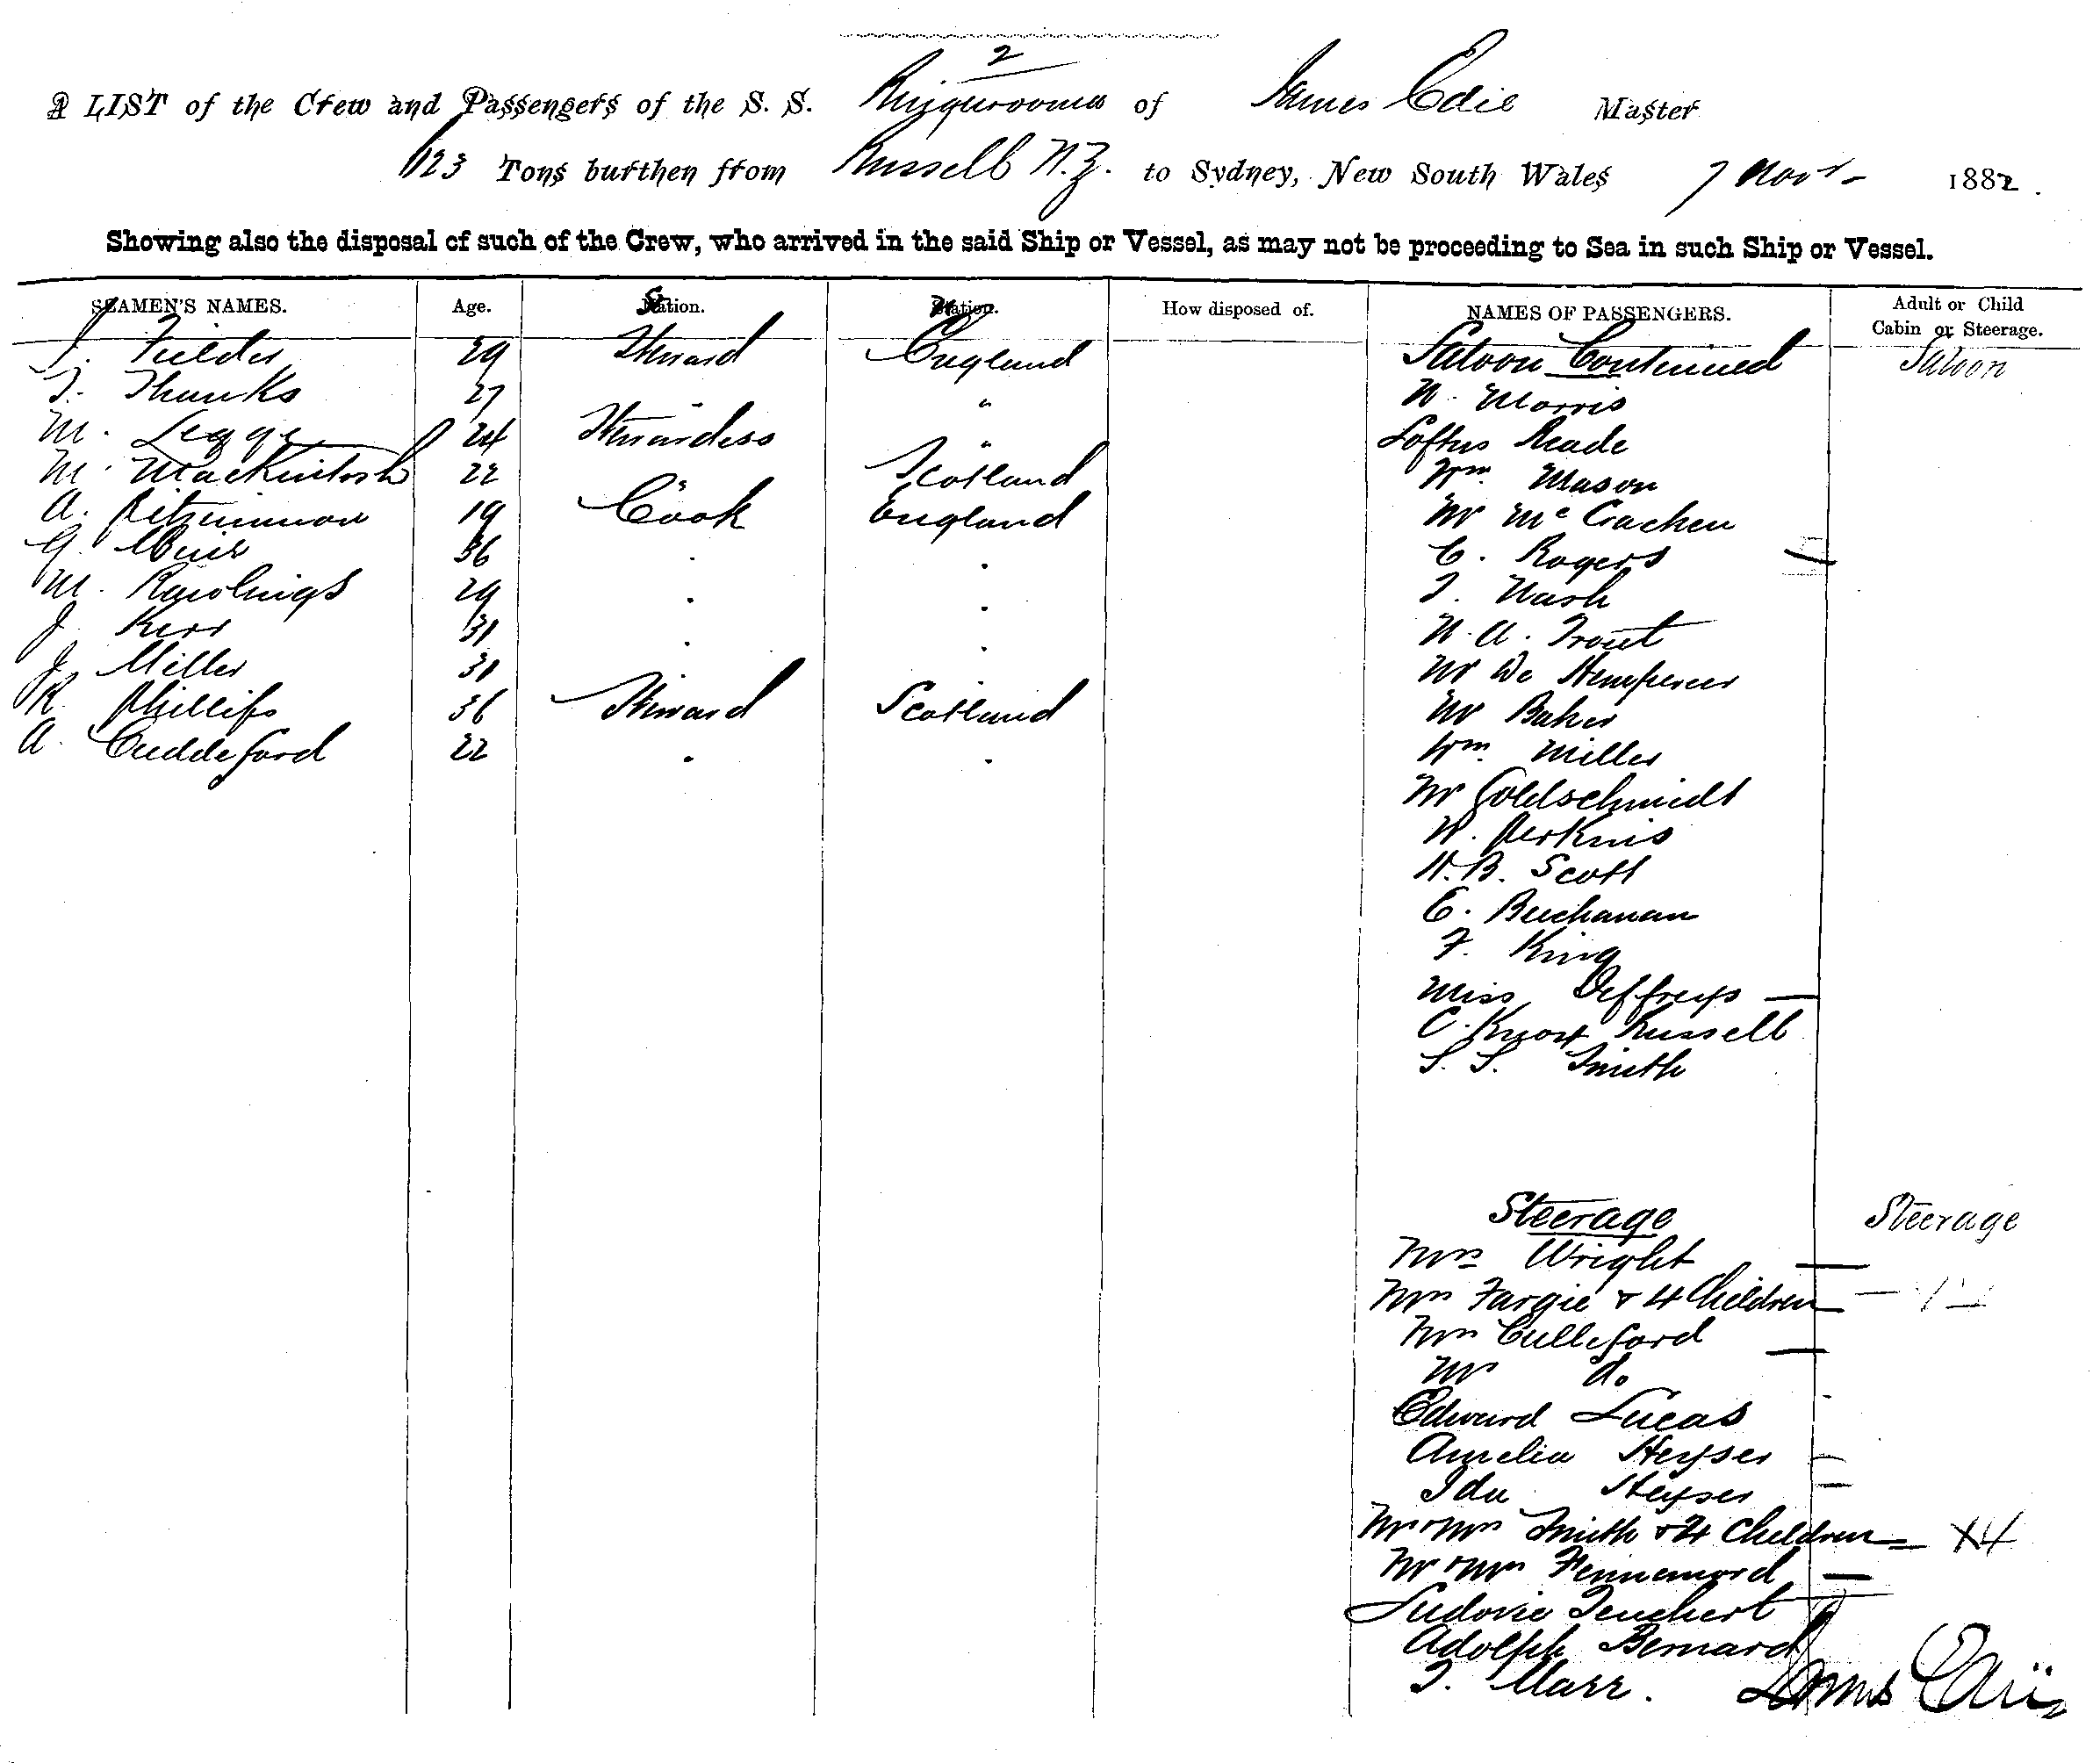 2
A LIST of the Crew and Passengers of the S. S. Ringarooma of James Edie Master
1123 Tons burthen from Russell N.Z. to Sydney, New South Wales 7 Novr 1882.
Showing also the disposal of such of the Crew, who arrived in the said Ship or Vessel, as may not be proceeding to Sea in such Ship or Vessel.
SEAMEN'S NAMES. Age. Station. Nation. How disposed of. NAMES OF PASSENGERS. Adult or Child Cabin or Steerage.
Fielder 29 Steward England Saloon Continued Saloon
Thanks 27 " Morris
M. Legge 24 Stewardess " Loftus Reade
M. MacKintosh 22 " Scotland Wm. Mason
A. Fitzsimmon 19 Cook England Mr McCracken
G. Muir 36 . . C. Rogers
M. Rawlings 29 . . Nash
J. Kerr 31 . . A. Trout
J. Miller 31 Mr De
R. Phillips 36 Steward Scotland Mr Baker
A. Cuddeford 22 . . Wm. Miller
Mr Goldschmidt
W. Perkins
H.B. Scott
E. Buchanan
F. King
Miss Jeffreys
C. Knox Russell
S. S. Smith
Steerage Steerage
Mrs Wright
Mrs Fargie & 4 Children
Mrs Culleford
Mr do
Edward Lucas
Amelia Heyser
Ida Heyser
Mr & Mrs Smith & 4 Children X4
Mr & Mrs Fennemord
Ludovic Teuchert
Adolph Bernard
Marr. James Edie